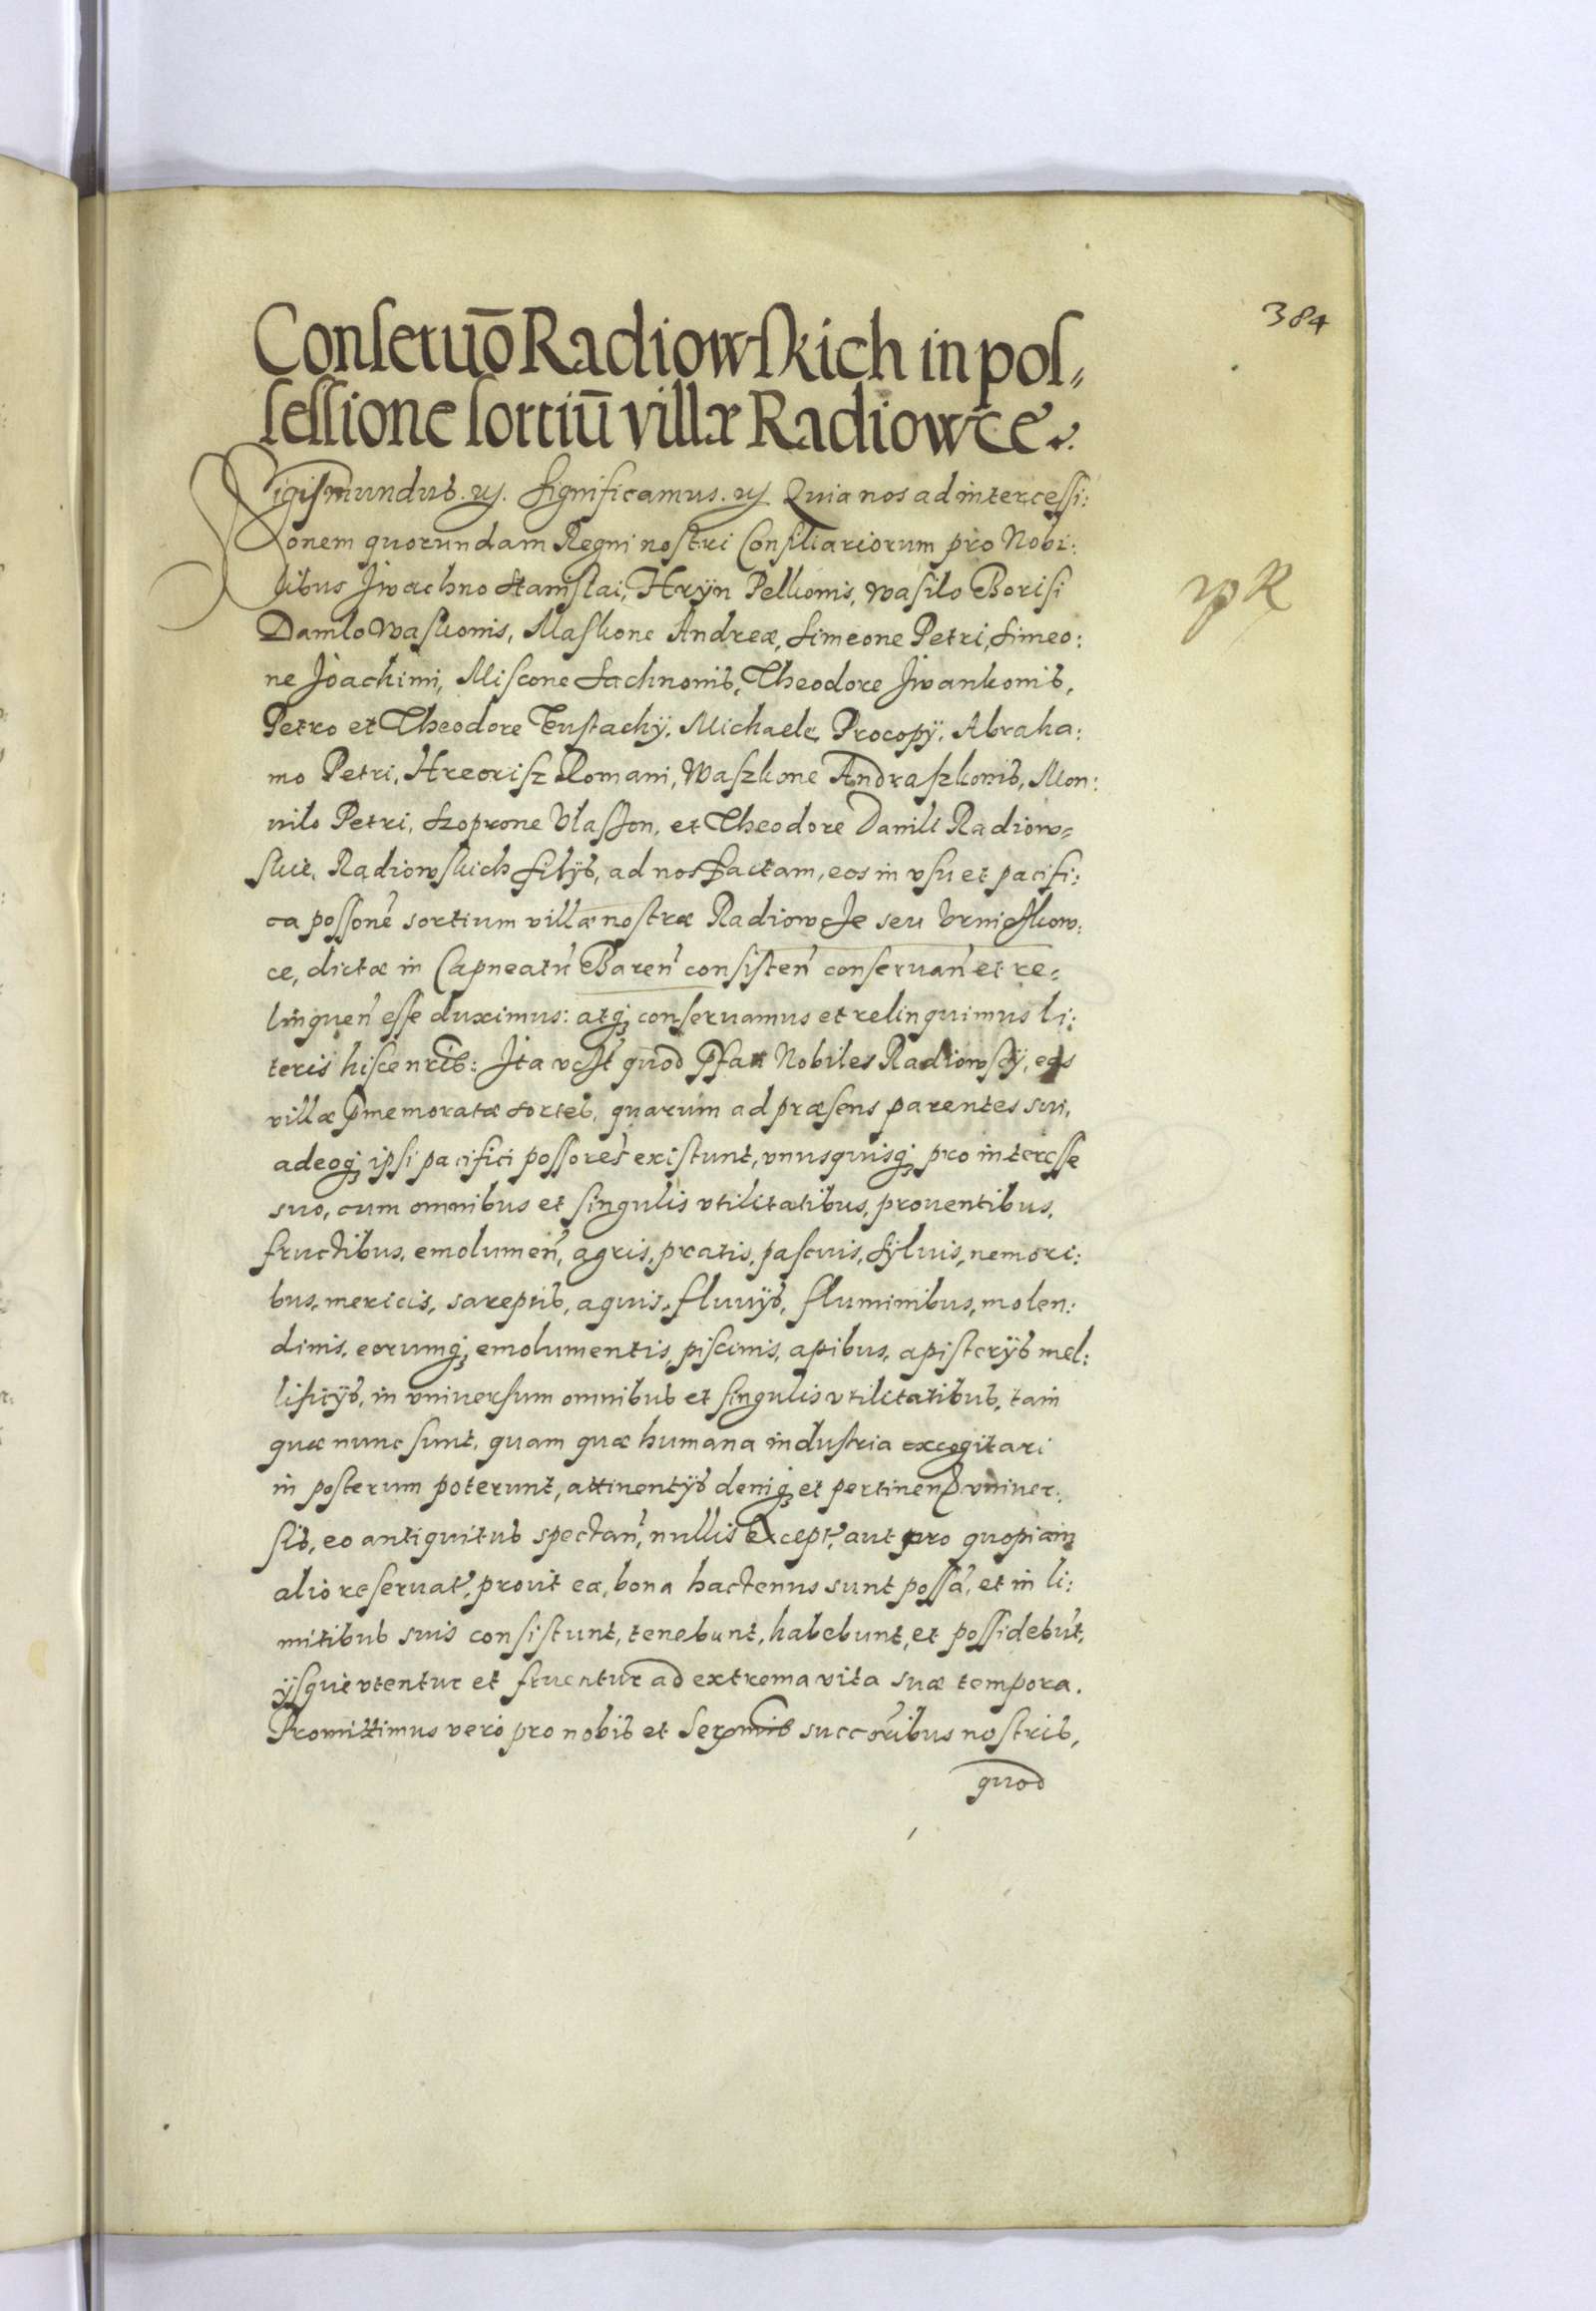 384
Conseruõ Radiowskich in pos„
sessione sortiũ villæ Radiowce.
Sigismundus. Significamus. Quia nos ad intercessi:
onem quorundam Regni nostri Consiliariorum pro Nobi:
libus Jwachno Stanislai, Hryn Pelkonis, Wasilo Borisi
Danilo Waskonis, Maskone Andreæ, Simeone Petri, Simeo:
ne Joachimi, Miscone Sachnonis, Theodore Jwankonis,
Petro et Theodore Eustachÿ, Michaele Procopÿ, Abraha:
mo Petri, Hreorisz Romani, Waszkone Andraszkonis, Mon:
uilo Petri, Szoprone Vlasson, et Theodore Danili Radiow=
skie, Radiowskich filÿs, ad nos factam, eos in vsu et pacifi:
ca possone sortium villæ nostræ Radiowcze seu Vrniskow:
ce, dictæ in Capneatu Baren consisten conseruan et re=
linquen esse duximus: atq, conseruamus et relinquimus li:
teris hisce nris: Ita quod Nobiles Radiowscÿ, eas
villæ pmemoratæ sortes, quarum ad præsens parentes sui,
adeoq, ipsi pacifici possores existunt, vnusquisq, pro interesse
suo, cum omnibus et singulis vtilitatibus, prouentibus,
fructibus, emolumen, agris, pratis, pascuis, syluis, nemori:
bus, mericis, sareptis, aquis, fluuÿs, fluminibus, molen:
dinis, eorumq, emolumentis, piscinis, apibus, apisterÿs mel:
lificÿs, in vniuersum omnibus et singulis vtilitatibus, tam
quæ nunc sunt, quam quæ humana industria excogitari
in posterum poterunt, attinentÿs deniq, et pertinen vniuer:
sis, eo antiquitus spectan, nullis except, aut pro quopiam
alio reseruat, prout ea, bona hactenus sunt possa, et in li:
mitibus suis consistunt, tenebunt, habebunt, et possidebut,
ÿsque vtentur et fruentur ad extrema vita suæ tempora.
Promittimus vero pro nobis et Sermis succoribus nostris,
quod